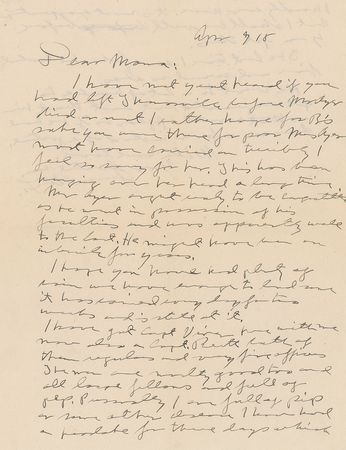 Apr 9 18
Dear Mama:
I have not yet heard if you
had left before Mr Ayer
died or not I rather hope for B's
sake you were there for poor Mrs Ayer
must have carried on terribly I
feel so sorry for her. This has been
hanging over her head a long time.
Mr Ayer ought only to be
as he went in possession of his
faculties and was apparently well
to the last. He might have been an
invalid for years.
I hope you have had plenty of
rain we have enough to lend one
it has rained every day for two
weeks and is still at it.
I have got Capt with me
now also a Capt both of
them regulars and very fine officers
The men are mostly good too and
all large fellows and full of
pep. Personally I am full of pip
or some other disease I have had
a headache for three days which